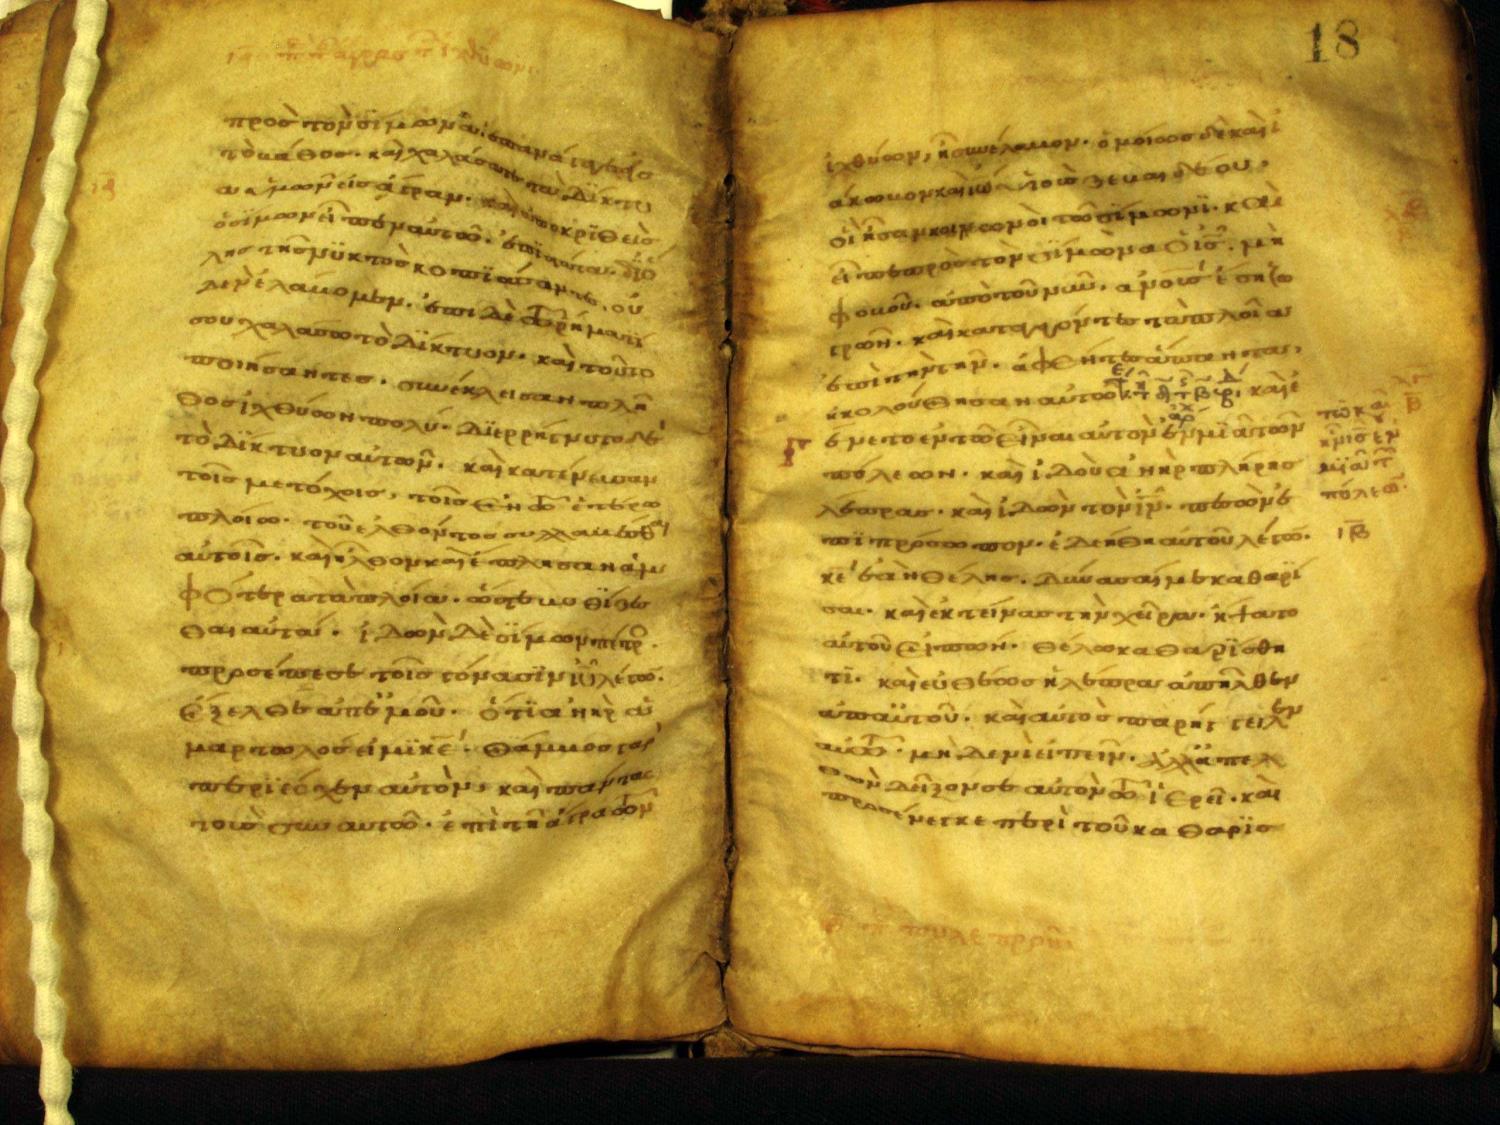 πρὸς τὸν σίμωνα· ἐπανάγαγε εἰς
τὸ βάθος· καὶ χαλάσατε τὰ δίκτυ
α ὑμῶν εἰς ἄγραν· καὶ ἀποκριθεὶς
ὁ σίμων εἶπεν αὐτῷ· ἐπιστάτα· δι ὅ
λης τῆς νυκτὸς κοπιάσαντες, οὐ
δὲν ἐλάβομεν· ἐπὶ δὲ τῷ ῥήματί
σου χαλάσω τὸ δίκτυον· καὶ τοῦτο
ποιήσαντες· συνέκλεισαν πλῆ
θος ἰχθύων πολύ· διερρήγνυτο δὲ
τὸ δίκτυον αὐτῶν· καὶ κατένευσαν
τοῖς μετόχοις, τοῖς ἐν τῷ ἑτέρῳ
πλοίῳ· τοῦ ἐλθόντας συλλαβέσθαι
αὐτοῖς· καὶ ἦλθον καὶ ἔπλησαν ἀμ
φότερα τὰ πλοῖα· ὥστε βυθίζε
σθαι αὐτά· ἰδὼν δὲ σίμων πέτρο
προσέπεσε τοῖς γόνασιν ἰῦ λέγω·
ἔξελθε ἀπ ἐμοῦ· ὅτι ἀνὴρ ἁ
μαρτωλός εἰμι κε· θάμβος γὰρ
περιέσχεν αὐτὸν, καὶ πάντας
τοὺς σὺν αὐτῷ· ἐπὶ τῇ ἄγρᾳ τῶν
18
ἰχθύων, ᾗ συνέλαβον· ὁμοίως δὲ καὶ ἰ
άκωβον καὶ ἰω τοὺς ζεβαιδέου,
οἳ ἦσαν κοινωνοὶ τῷ σίμωνι· καὶ
εἶπε πρὸς τὸν σίμωνα ὁ ις· μὴ
φοβοῦ· ἀπὸ τοῦ νῦν· ἀνοὺς ἔσῃ ζω
γρῶν· καὶ καταγαγόντες τὰ πλοῖα
ἐπὶ τὴν γῆν· ἀφέντες ἅπαντα,
ἠκολούθησαν αὐτῷ καὶ ἐ
γένετο ἐν τῷ εἶναι αὐτὸν ἐν μιᾷ τῶν
πόλεων· καὶ ἰδοὺ ἀνὴρ πλήρης
λέπρας· καὶ ἰδὼν τὸν ιν· πεσὼν ἐ
πὶ πρόσωπον· ἐδεήθη αὐτοῦ λέγω·
κε ἐὰν θέλῃς· δύνασαί με καθαρί
σαι· καὶ ἐκτείνας τὴν χεῖρα· ἥψατο
αὐτοῦ εἰπών· θέλω καθαρίσθη
τι· καὶ εὐθέως ἡ λέπρα ἀπῆλθεν
ἀπ αὐτοῦ· καὶ αὐτὸς παρήγγειλεν
αὐτῷ· μηδενὶ εἰπεῖν· ἀλλὰ ἀπελ
θὼν δεῖξον σε αὐτὸν τῷ ἱερεῖ· καὶ
προσένεγκε περὶ τοῦ καθαρισ
ιβ